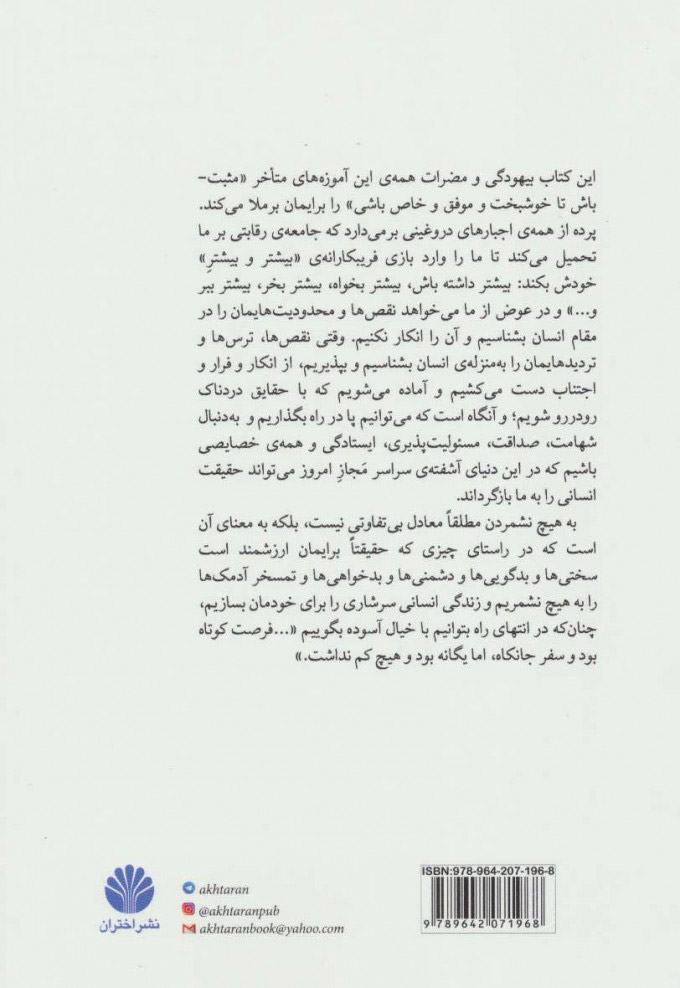 این کتاب بیهودگی و مضرات همه‌ی این آموزه‌های متأخر «مثبت-
باش تا خوشبخت و موفق و خاص باشی» را برایمان برملا می‌کند.
پرده از همه‌ی اجبارهای دروغینی برمی‌دارد که جامعه‌ی رقابتی بر ما
تحمیل می‌کند تا ما را وارد بازی فریبکارانه‌ی «بیشتر و بیشترِ»
خودش بکند: بیشتر داشته باش، بیشتر بخواه، بیشتر بخر، بیشتر ببر
و...» و در عوض از ما می‌خواهد نقص‌ها و محدودیت‌هایمان را در
مقام انسان بشناسیم و آن را انکار نکنیم. وقتی نقص‌ها، ترس‌ها و
تردیدهایمان را به‌منزله‌ی انسان بشناسیم و بپذیریم، از انکار و فرار و
اجتناب دست می‌کشیم و آماده می‌شویم که با حقایق دردناک
رودررو شویم؛ و آنگاه است که می‌توانیم پا در راه بگذاریم و به‌دنبال
شهامت، صداقت، مسئولیت‌پذیری، ایستادگی و همه‌ی خصایصی
باشیم که در این دنیای آشفته‌ی سراسر مَجازِ امروز می‌تواند حقیقت
انسانی را به ما بازگرداند.
به هیچ نشمردن مطلقاً معادل بی‌تفاوتی نیست، بلکه به معنای آن
است که در راستای چیزی که حقیقتاً برایمان ارزشمند است
سختی‌ها و بدگویی‌ها و دشمنی‌ها و بدخواهی‌ها و تمسخر آدمک‌ها
را به هیچ نشمریم و زندگی انسانی سرشاری را برای خودمان بسازیم،
چنان‌که در انتهای راه بتوانیم با خیال آسوده بگوییم «...فرصت کوتاه
بود و سفر جانکاه، اما یگانه بود و هیچ کم نداشت.»
نشر اختران
akhtaran
@akhtaranpub
akhtaranbook@yahoo.com
ISBN:978-964-207-196-8
9 789642 071968